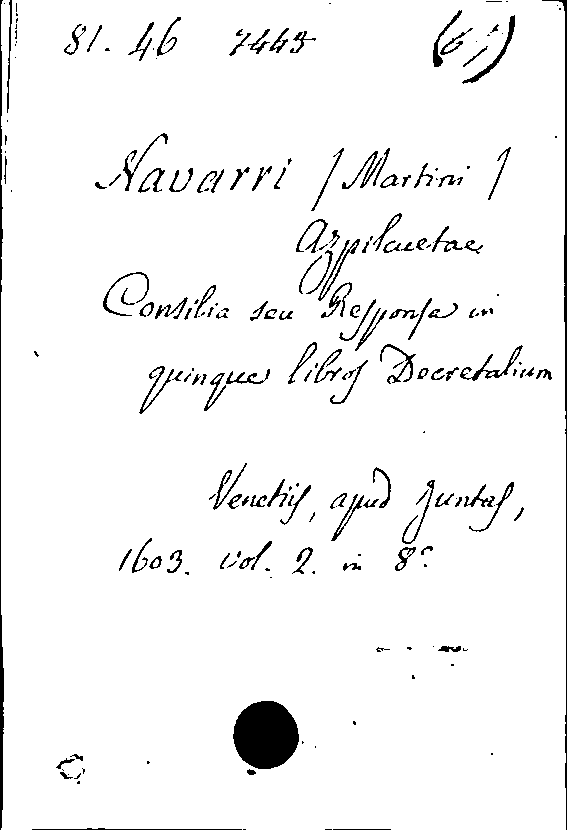 81. 46 7443
Navarri / Martini /
Azpilcuetae
Consilia seu Responsa in
quinque libros Decretalium
Venetiis, apud Juntas,
1603. vol. 2. in 8°